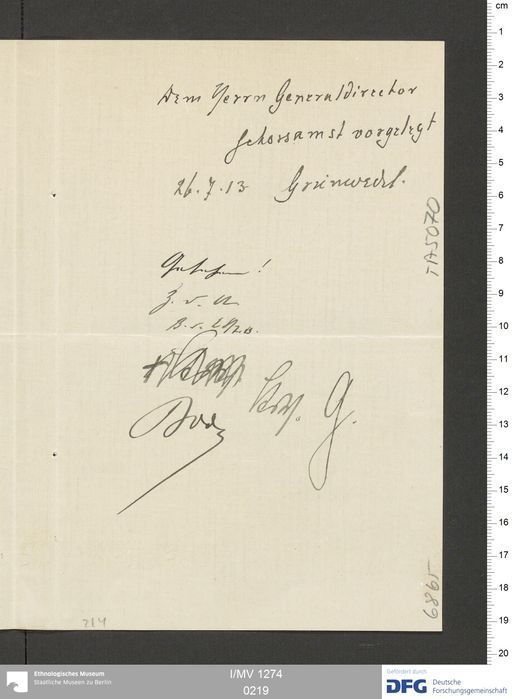 Dem Herrn Generaldirector
gehorsamst vorgelegt
26.7.13 Grünwedel.
Gesehen!
Z. v. A.
Bode
G.
TA5070
6865
214
cm
1
2
3
4
5
6
7
8
9
10
11
12
13
14
15
16
17
18
19
20
Ethnologisches Museum
Staatliche Museen zu Berlin
I/MV 1274
0219
Gefördert durch
DFG Deutsche
Forschungsgemeinschaft